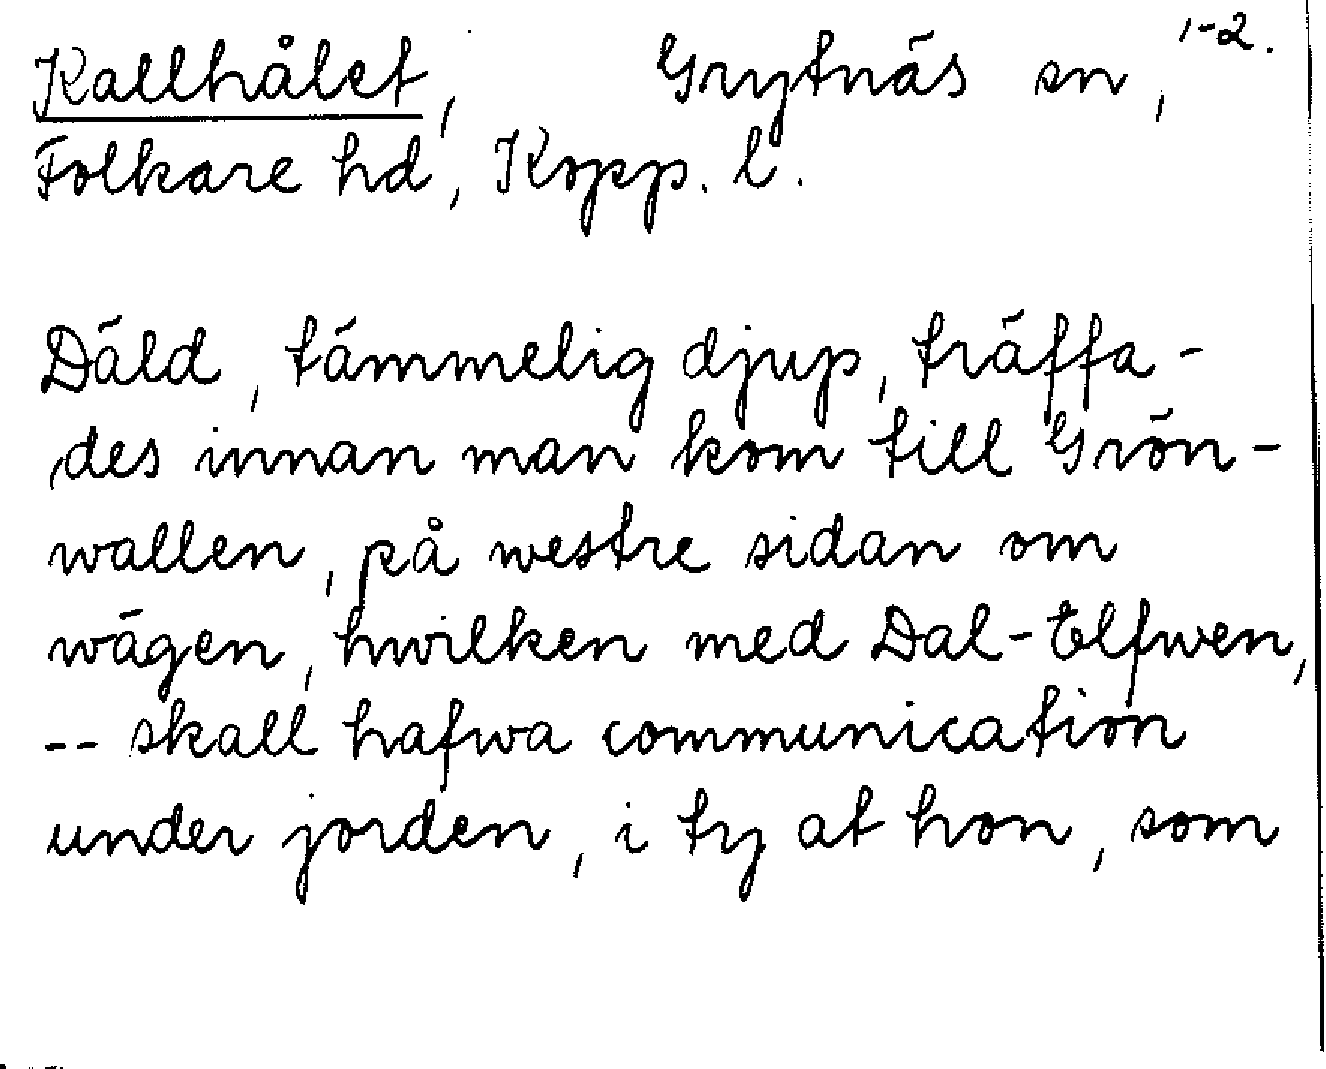 1-2.
Kallhålet, Grytnäs sn,
Folkare hd, Kopp. l.
Däld, tämmelig djup, träffa-
des innan man kom till Grön-
wallen, på westre sidan om
wägen, hwilken med Dal-Elfwen,
-- skall hafwa communication
under jorden, i ty at hon, som